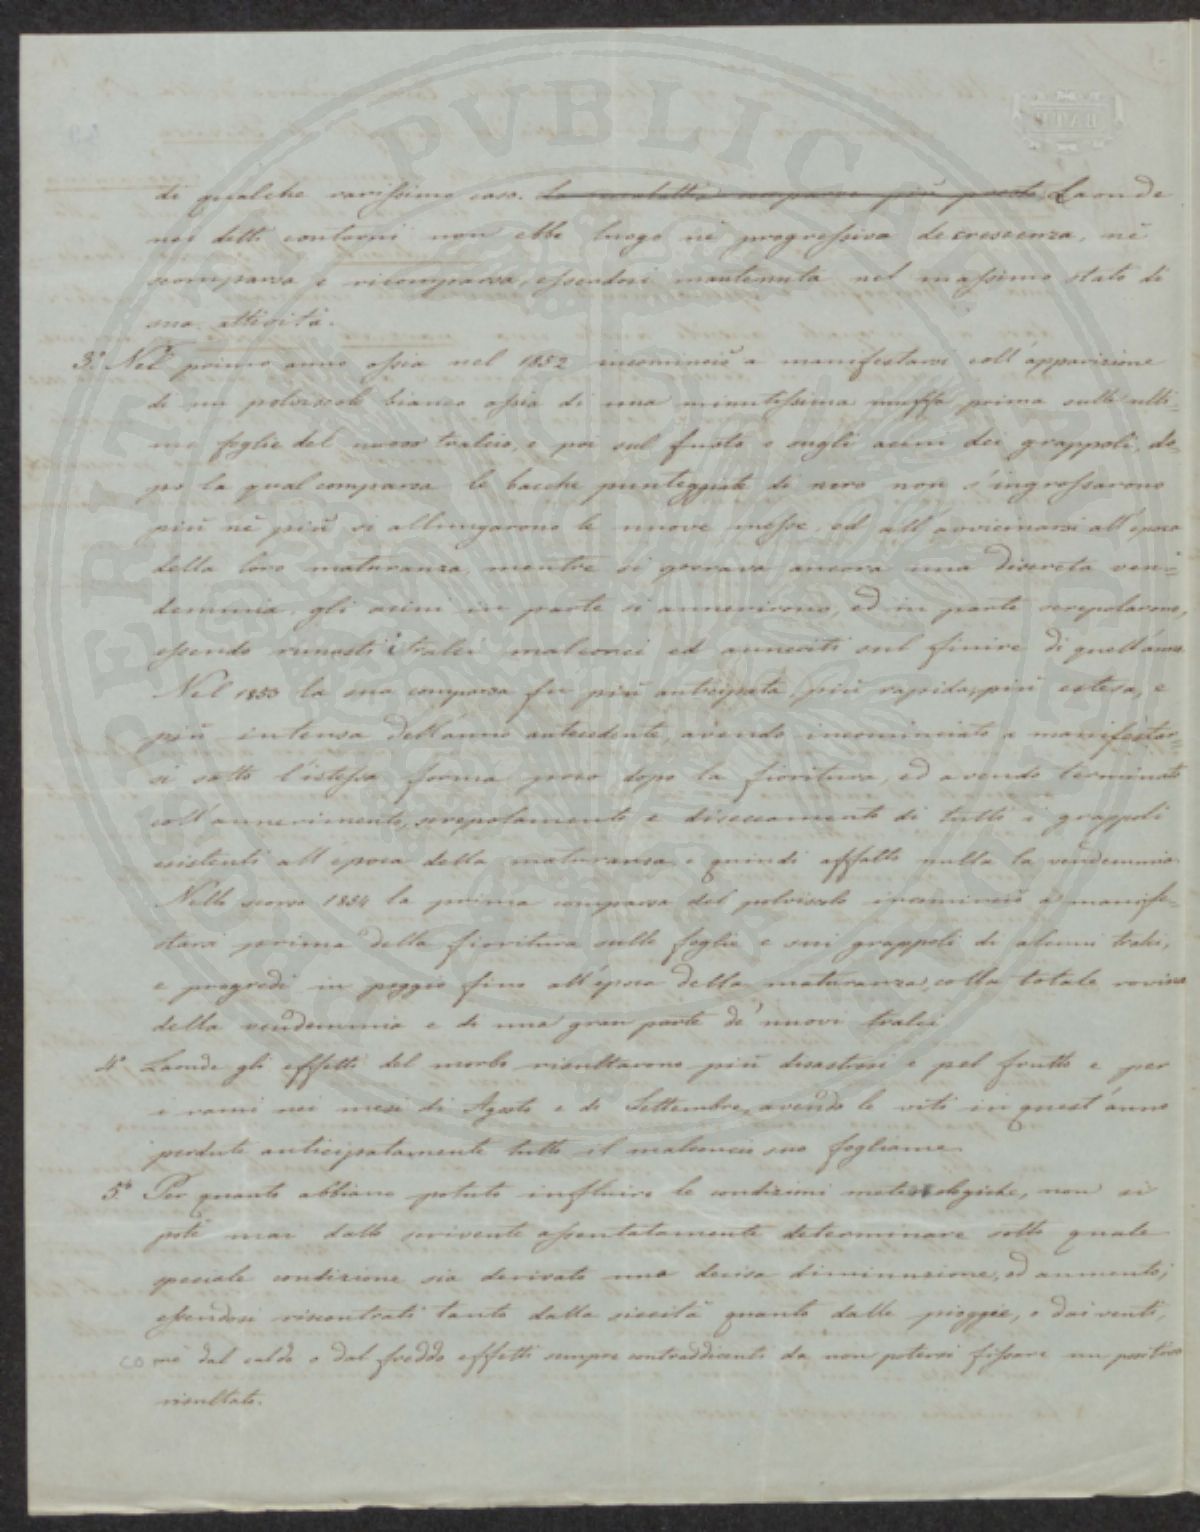 di qualche rarissimo caso. La malattia comparve più presto Laonde
nei detti contorni non ebbe luogo nè progressiva decrescenza, nè
scomparsa e ricomparsa, essendosi mantenuta nel massimo stato di
sua attività.
3.° Nel primo anno ossia nel 1852 incominciò a manifestarsi coll'apparizione
di un polviscolo bianco ossia di una minutissima muffa prima sulle ulti=
me foglie del nuovo tralcio, e poi sul fusto e sugli acini dei grappoli, do=
po la qual comparsa le bacche punteggiate di nero non s'ingrossarono
più nè più si allungarono le nuove messe, ed all'avvicinarsi all'epoca
della loro maturanza, mentre si sperava ancora una discreta ven=
demmia, gli acini in parte si annerirono, ed in parte screpolarono,
essendo rimasti i tralci malconci ed anneriti sul finire di quell'anno.
Nel 1853 la sua comparsa fu più anticipata, più rapida, più estesa, e
più intensa dell'anno antecedente, avendo incominciato a manifestar=
si sotto l'istessa forma poco dopo la fioritura, ed avendo terminato
coll'annerimento, screpolamento e disseccamento di tutti i grappoli
esistenti all'epoca della maturanza, e quindi affatto nulla la vendemmia.
Nello scorso 1854 la prima comparsa del polviscolo incominciò a manife=
starsi prima della fioritura sulle foglie e sui grappoli di alcuni tralci,
e progredì in peggio fino all'epoca della maturanza, colla totale rovina
della vendemmia e di una gran parte de' nuovi tralci
4° Laonde gli effetti del morbo risultarono più disastrosi e pel frutto e per
i rami nei mesi di Agosto e di Settembre, avendo le viti in quest'anno
perduto anticipatamente tutto il malconcio suo fogliame.
5.° Per quanto abbiano potuto influire le condizioni meteorologiche, non si
potè mai dallo scrivente assentatamente determinare sotto quale
speciale condizione sia derivata una decisa diminuzione, od aumento;
essendosi riscontrati tanto dalla siccità quanto dalle pioggie, o dai venti,
co me dal caldo o dal freddo effetti sempre contraddicenti da non potersi fissare un positivo
risultato.
PVBLICAE
BATH